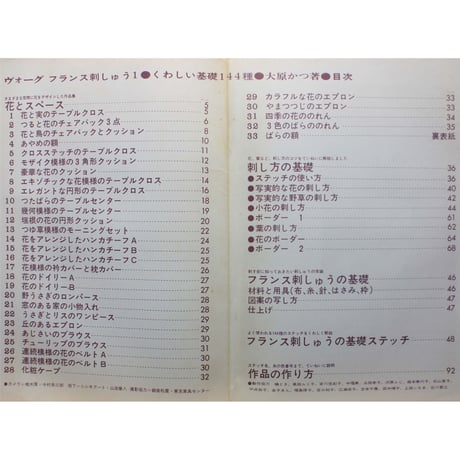 ヴォーグ フランス刺しゅう1●くわしい基礎144種●大原かつ著●目次
さまざまな空間に花をデザインした作品集
花とスペース 5
1 花と実のテーブルクロス 5
2 つると花のチェアバック3点 6
3 花と鳥のチェアバックとクッション 8
4 あやめの額 9
5 クロスステッチのテーブルクロス 10
6 モザイク模様の3角形クッション 11
7 豪華な花のクッション 12
8 エキゾチックな花模様のテーブルクロス 14
9 エレガントな円形のテーブルクロス 16
10 つたばらのテーブルセンター 18
11 幾何模様のテーブルセンター 18
12 垣根の花の円形クッション 19
13 つゆ草模様のモーニングセット 21
14 花をアレンジしたハンカチーフA 22
15 花をアレンジしたハンカチーフB 22
16 花をアレンジしたハンカチーフC 22
17 花模様の衿カバーと枕カバー 24
18 花のドイリーA 25
19 花のドイリーB 26
20 野うさぎのロンパース 26
21 窓のある家の小物入れ 28
22 うさぎとリスのワンピース 28
23 丘のあるエプロン 28
24 あじさいのブラウス 29
25 チューリップのブラウス 30
26 連続模様の花のベルトA 31
27 連続模様の花のベルトB 31
28 化粧ケープ 32
29 カラフルな花のエプロン 33
30 やまつつじのエプロン 33
31 四季の花ののれん 34
32 3色のばらののれん 35
33 ばらの額 裏表紙
刺し方の基礎 36
●ステッチの使い方 36
●写実的な花の刺し方 40
●写実的な野草の刺し方 42
●小花の刺し方 44
●ボーダー 1 61
●葉の刺し方 62
●花のボーダー 64
●ボーダー 2 68
フランス刺しゅうの基礎 46
材料と用具(布、糸、針、はさみ、枠) 46
図案の写し方 47
仕上げ 47
フランス刺しゅうの基礎ステッチ 48
作品の作り方 92